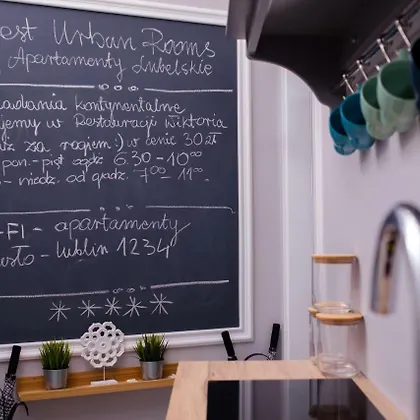 est Urban Rooms
Apartamenty Lubelskie
adania kontynentalne
jemy w Restauracji Wiktoria
uż za rogiem :) w cenie 30 zł
pon. - piąt godz 6.30 - 10⁰⁰
- niedz. od godz. 7⁰⁰ - 11⁰⁰.
-FI - apartamenty
sło - lublin 1234